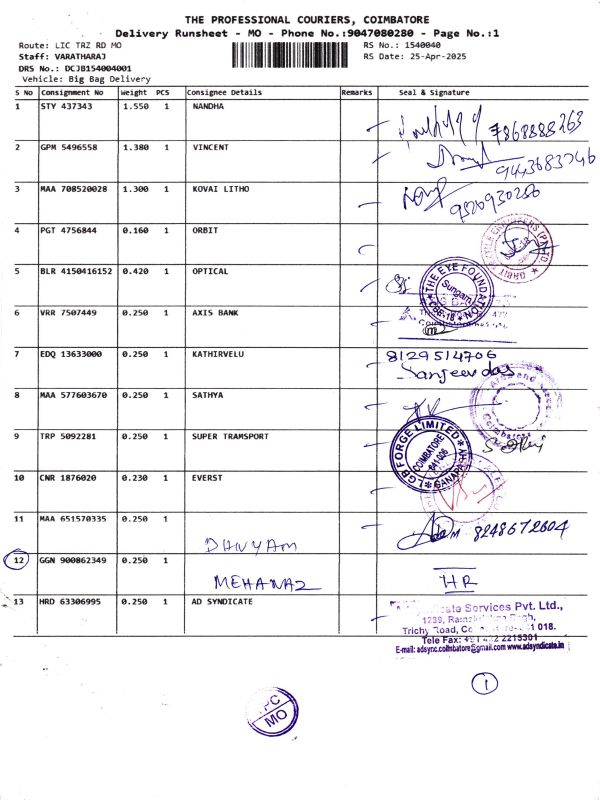 THE PROFESSIONAL COURIERS, COIMBATORE
Delivery Runsheet - MO - Phone No.:9047080280 - Page No.:1
Route: LIC TRZ RD MO
RS No.: 1540040
Staff: VARATHARAJ
RS Date: 25-Apr-2025
DRS No.: DCJB154004001
Vehicle: Big Bag Delivery
S No Consignment No Weight PCS Consignee Details Remarks Seal & Signature
1 STY 437343 1.550 1 NANDHA
7868888263
2 GPM 5496558 1.380 1 VINCENT
9443683746
3 MAA 708520028 1.300 1 KOVAI LITHO
4 PGT 4756844 0.160 1 ORBIT
5 BLR 4150416152 0.420 1 OPTICAL
THE EYE FOUNDATION
Sungam
CBE-18
6 VRR 7507449 0.250 1 AXIS BANK
7 EDQ 13633000 0.250 1 KATHIRVELU
8129514706
Sanjeevdas
8 MAA 577603670 0.250 1 SATHYA
9 TRP 5092281 0.250 1 SUPER TRAMSPORT
LGB FORGE LIMITED
COIMBATORE
641006
GANAPATHY
10 CNR 1876020 0.230 1 EVERST
11 MAA 651570335 0.250 1
DHVYAM
8248672604
12 GGN 900862349 0.250 1
MEHANAZ
HR
13 HRD 63306995 0.250 1 AD SYNDICATE
Services Pvt. Ltd.,
1239,
Trichy Road, 018.
Tele Fax: 2215301
E-mail: adsync.coimbatore@gmail.com www.adsyndicate.in
1
MO